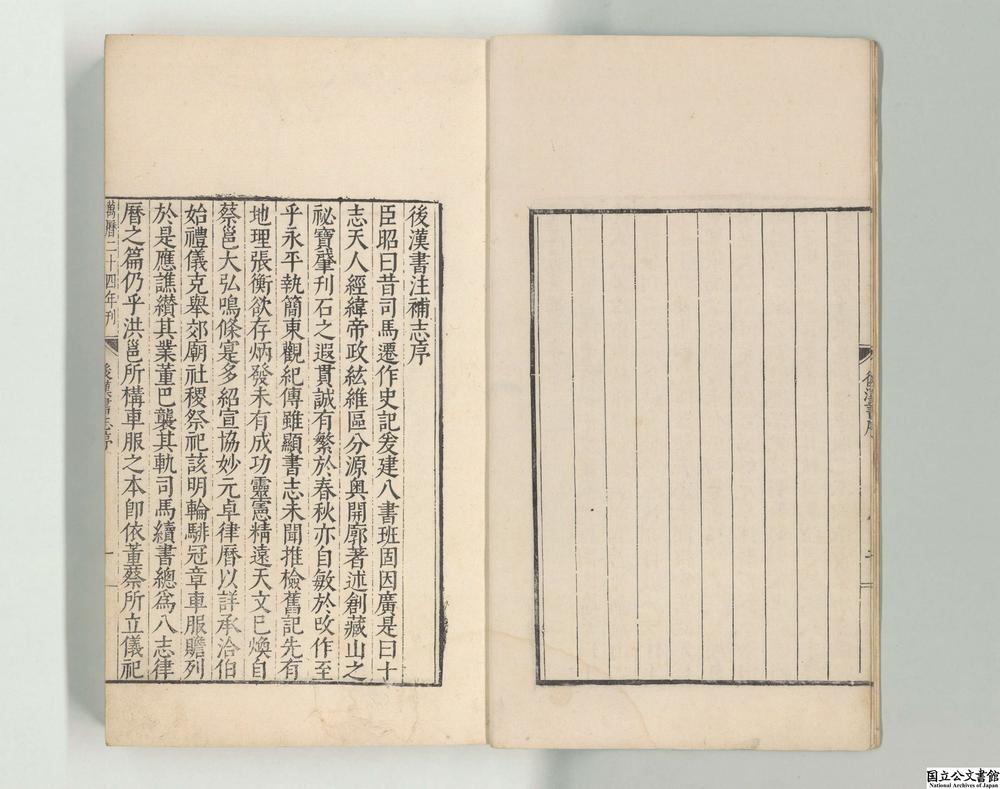 後漢書序
後漢書注補志序
臣昭曰昔司馬遷作史記爰建八書班固因廣是曰十
志天人經緯帝政紘維區分源奥開廓著述創藏山之
祕寶肇刊石之遐貫誠有繁於春秋亦自敏於改作至
乎永平執簡東觀紀傳雖顯書志未聞推檢舊記先有
地理張衡欲存炳發未有成功靈憲精遠天文已煥自
蔡邕大弘鳴條寔多紹宣協妙元卓律曆以詳承洽伯
始禮儀克舉郊廟社稷祭祀該明輪騑冠章車服贍列
於是應譙纘其業董巴襲其軌司馬續書總爲八志律
曆之篇仍乎洪邕所構車服之本卽依董蔡所立儀祀
萬曆二十四年刊
後漢書志序
一
国立公文書館
National Archives of Japan